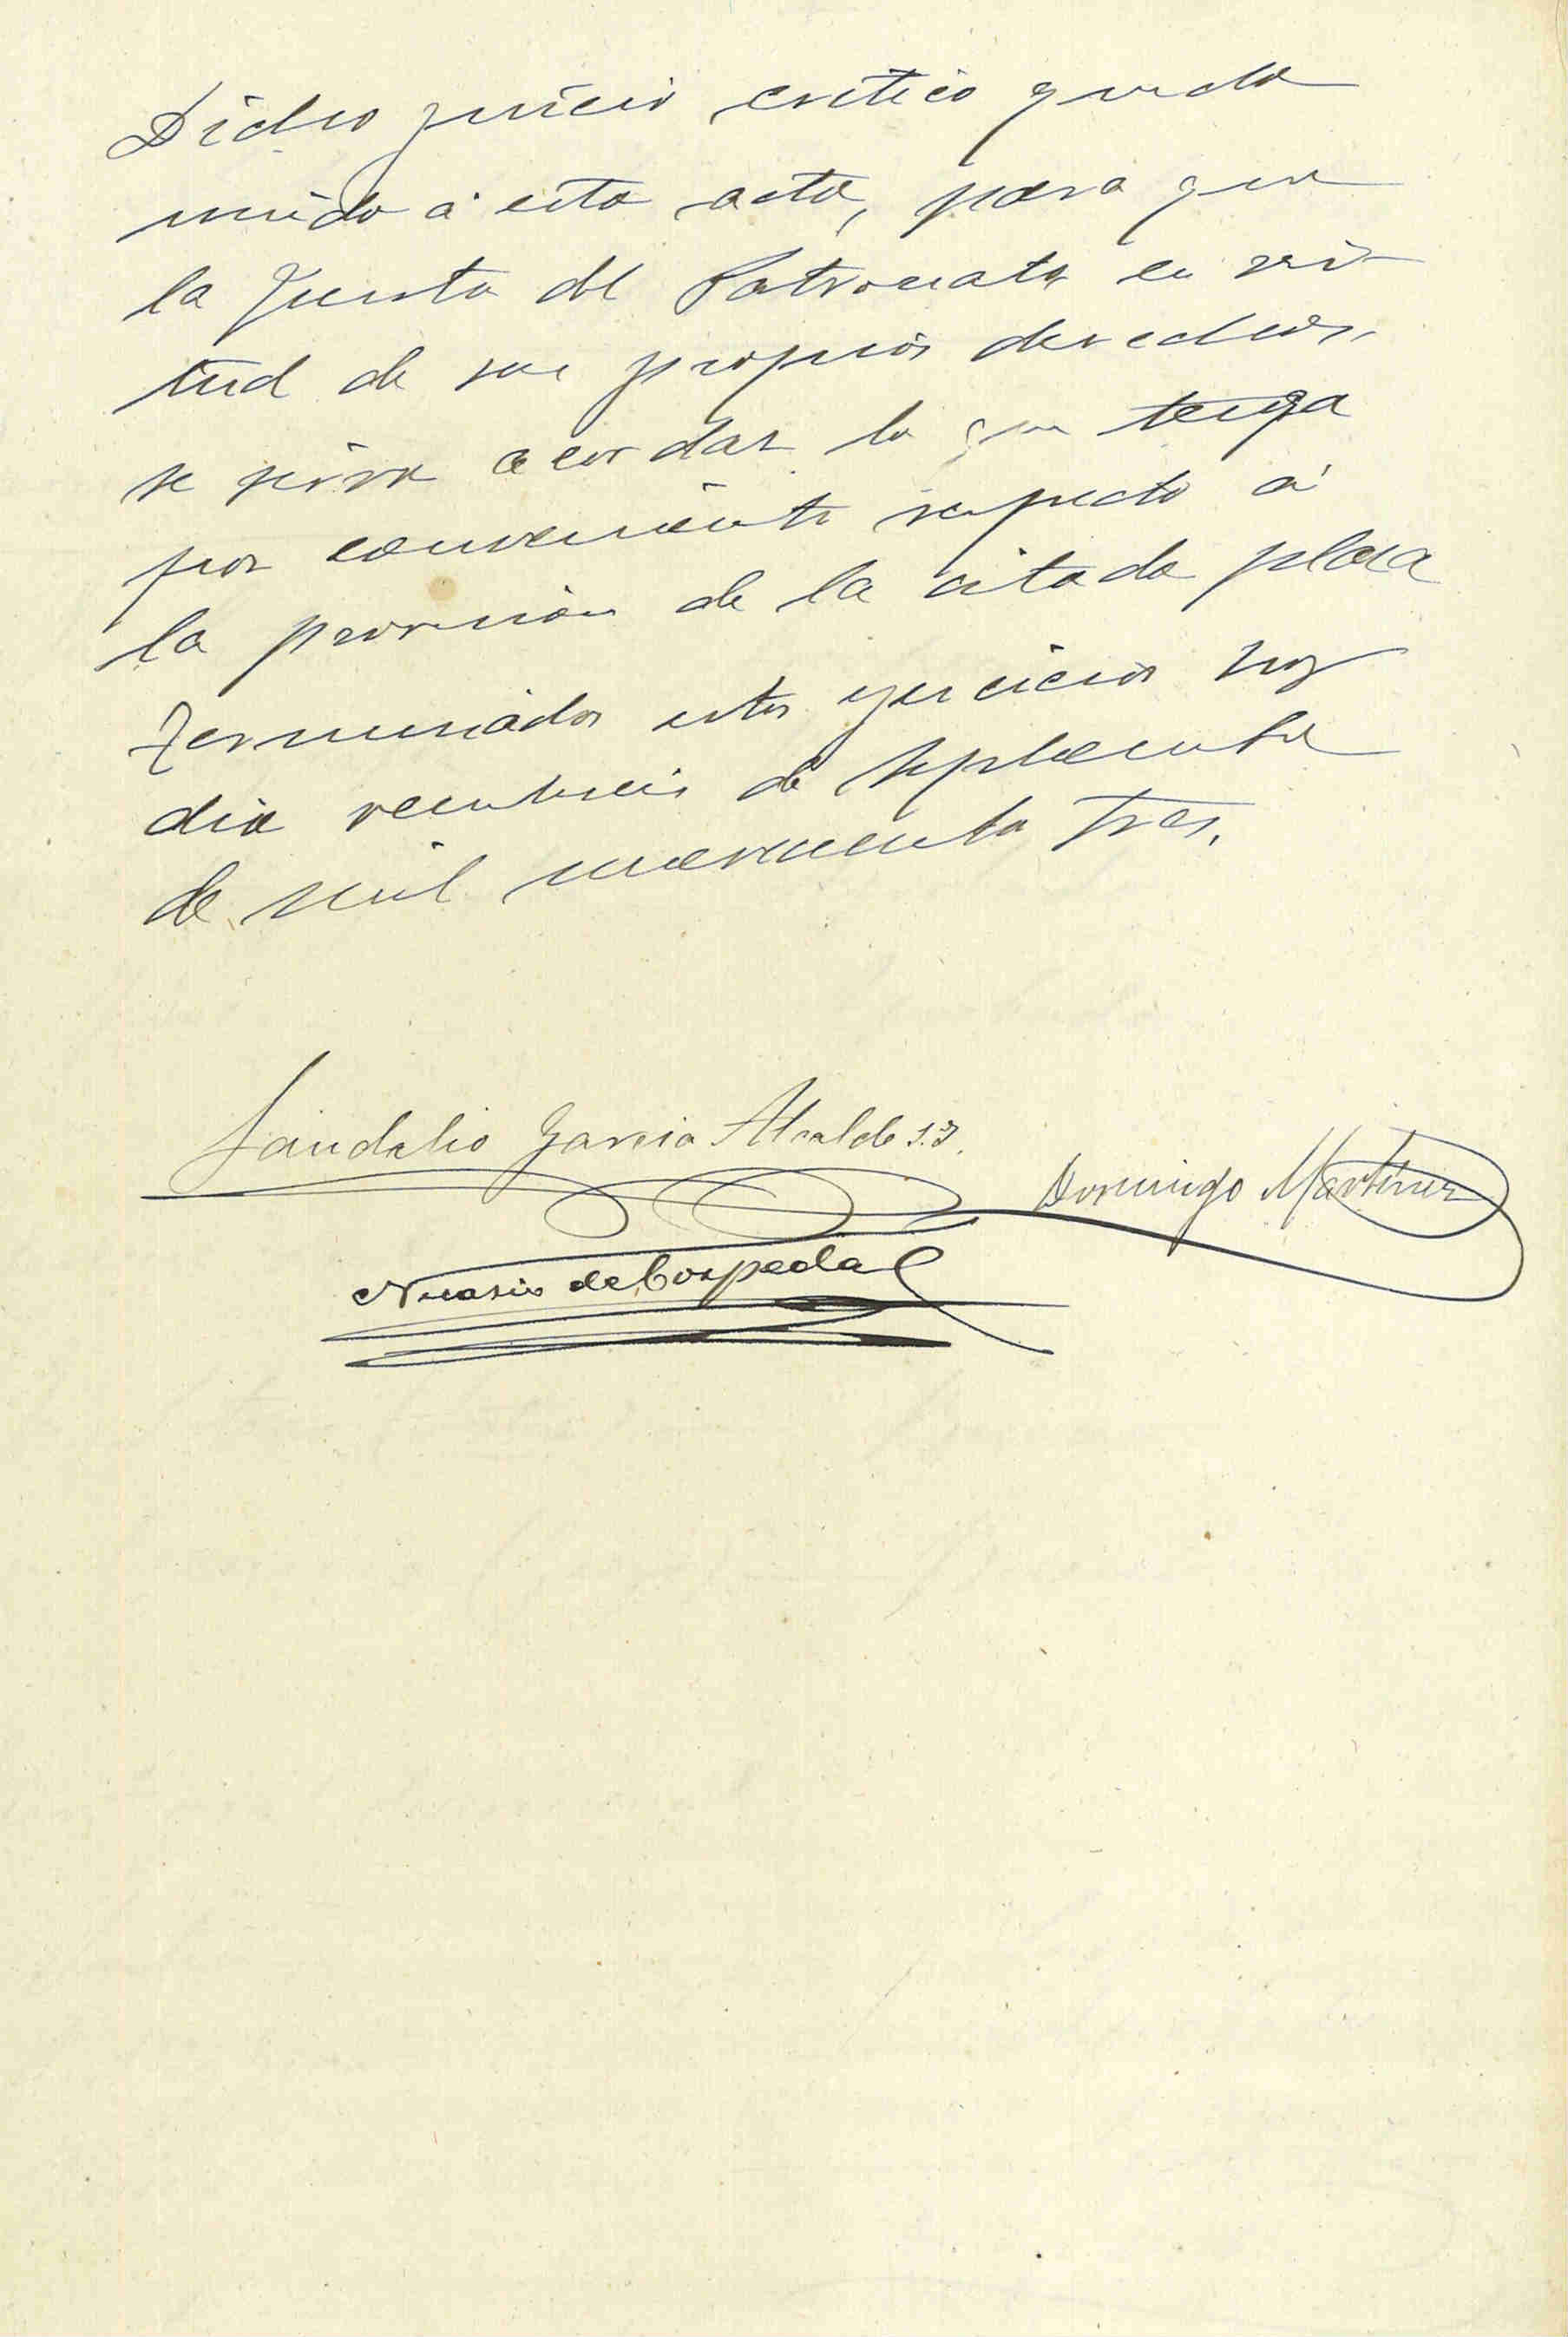 Dicho juicio critico queda
unido á esta acta, para que
la Junta del Patronato en vir-
tud de sus propios derechos,
se sirva acordar lo que tenga
por conveniente respecto á
la provision de la citada plaza
Terminados estos ejercicios hoy
dia veintiseis de Septiembre
de mil novecientos tres.
Sandalio Garcia Alcalde
Domingo Martinez
Nicasio de Cospedal